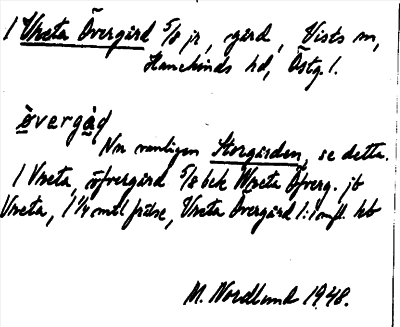 1 Vreta Övergård 5/8 jr, gård, Vists sn,
Hanekinds hd, Östg. l.
òvergàḍ
Nu vanligen Storgården, se detta.
1 Vreta, öfvergård 5/8 bck Wreta Öfverg. jb
Vreta, 1 1/4 mtl frälse, Vreta Övergård 1:1 mfl. kb
M. Nordlund 1948.